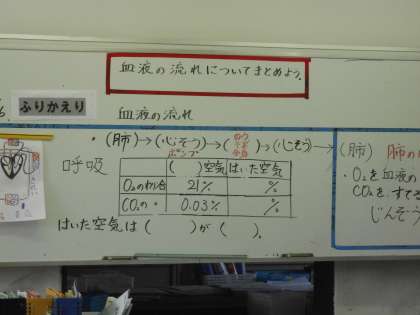 血液の流れについてまとめよう。
ふりかえり
血液の流れ
・(肺)→(心ぞう)→( )→(心ぞう)→(肺)
ポンプ
呼吸
( )空気 はいた空気
O₂の割合 21% %
CO₂の〃 0.03% %
はいた空気は( )が( )。
・O₂を血液の
CO₂をすてる
じんぞう